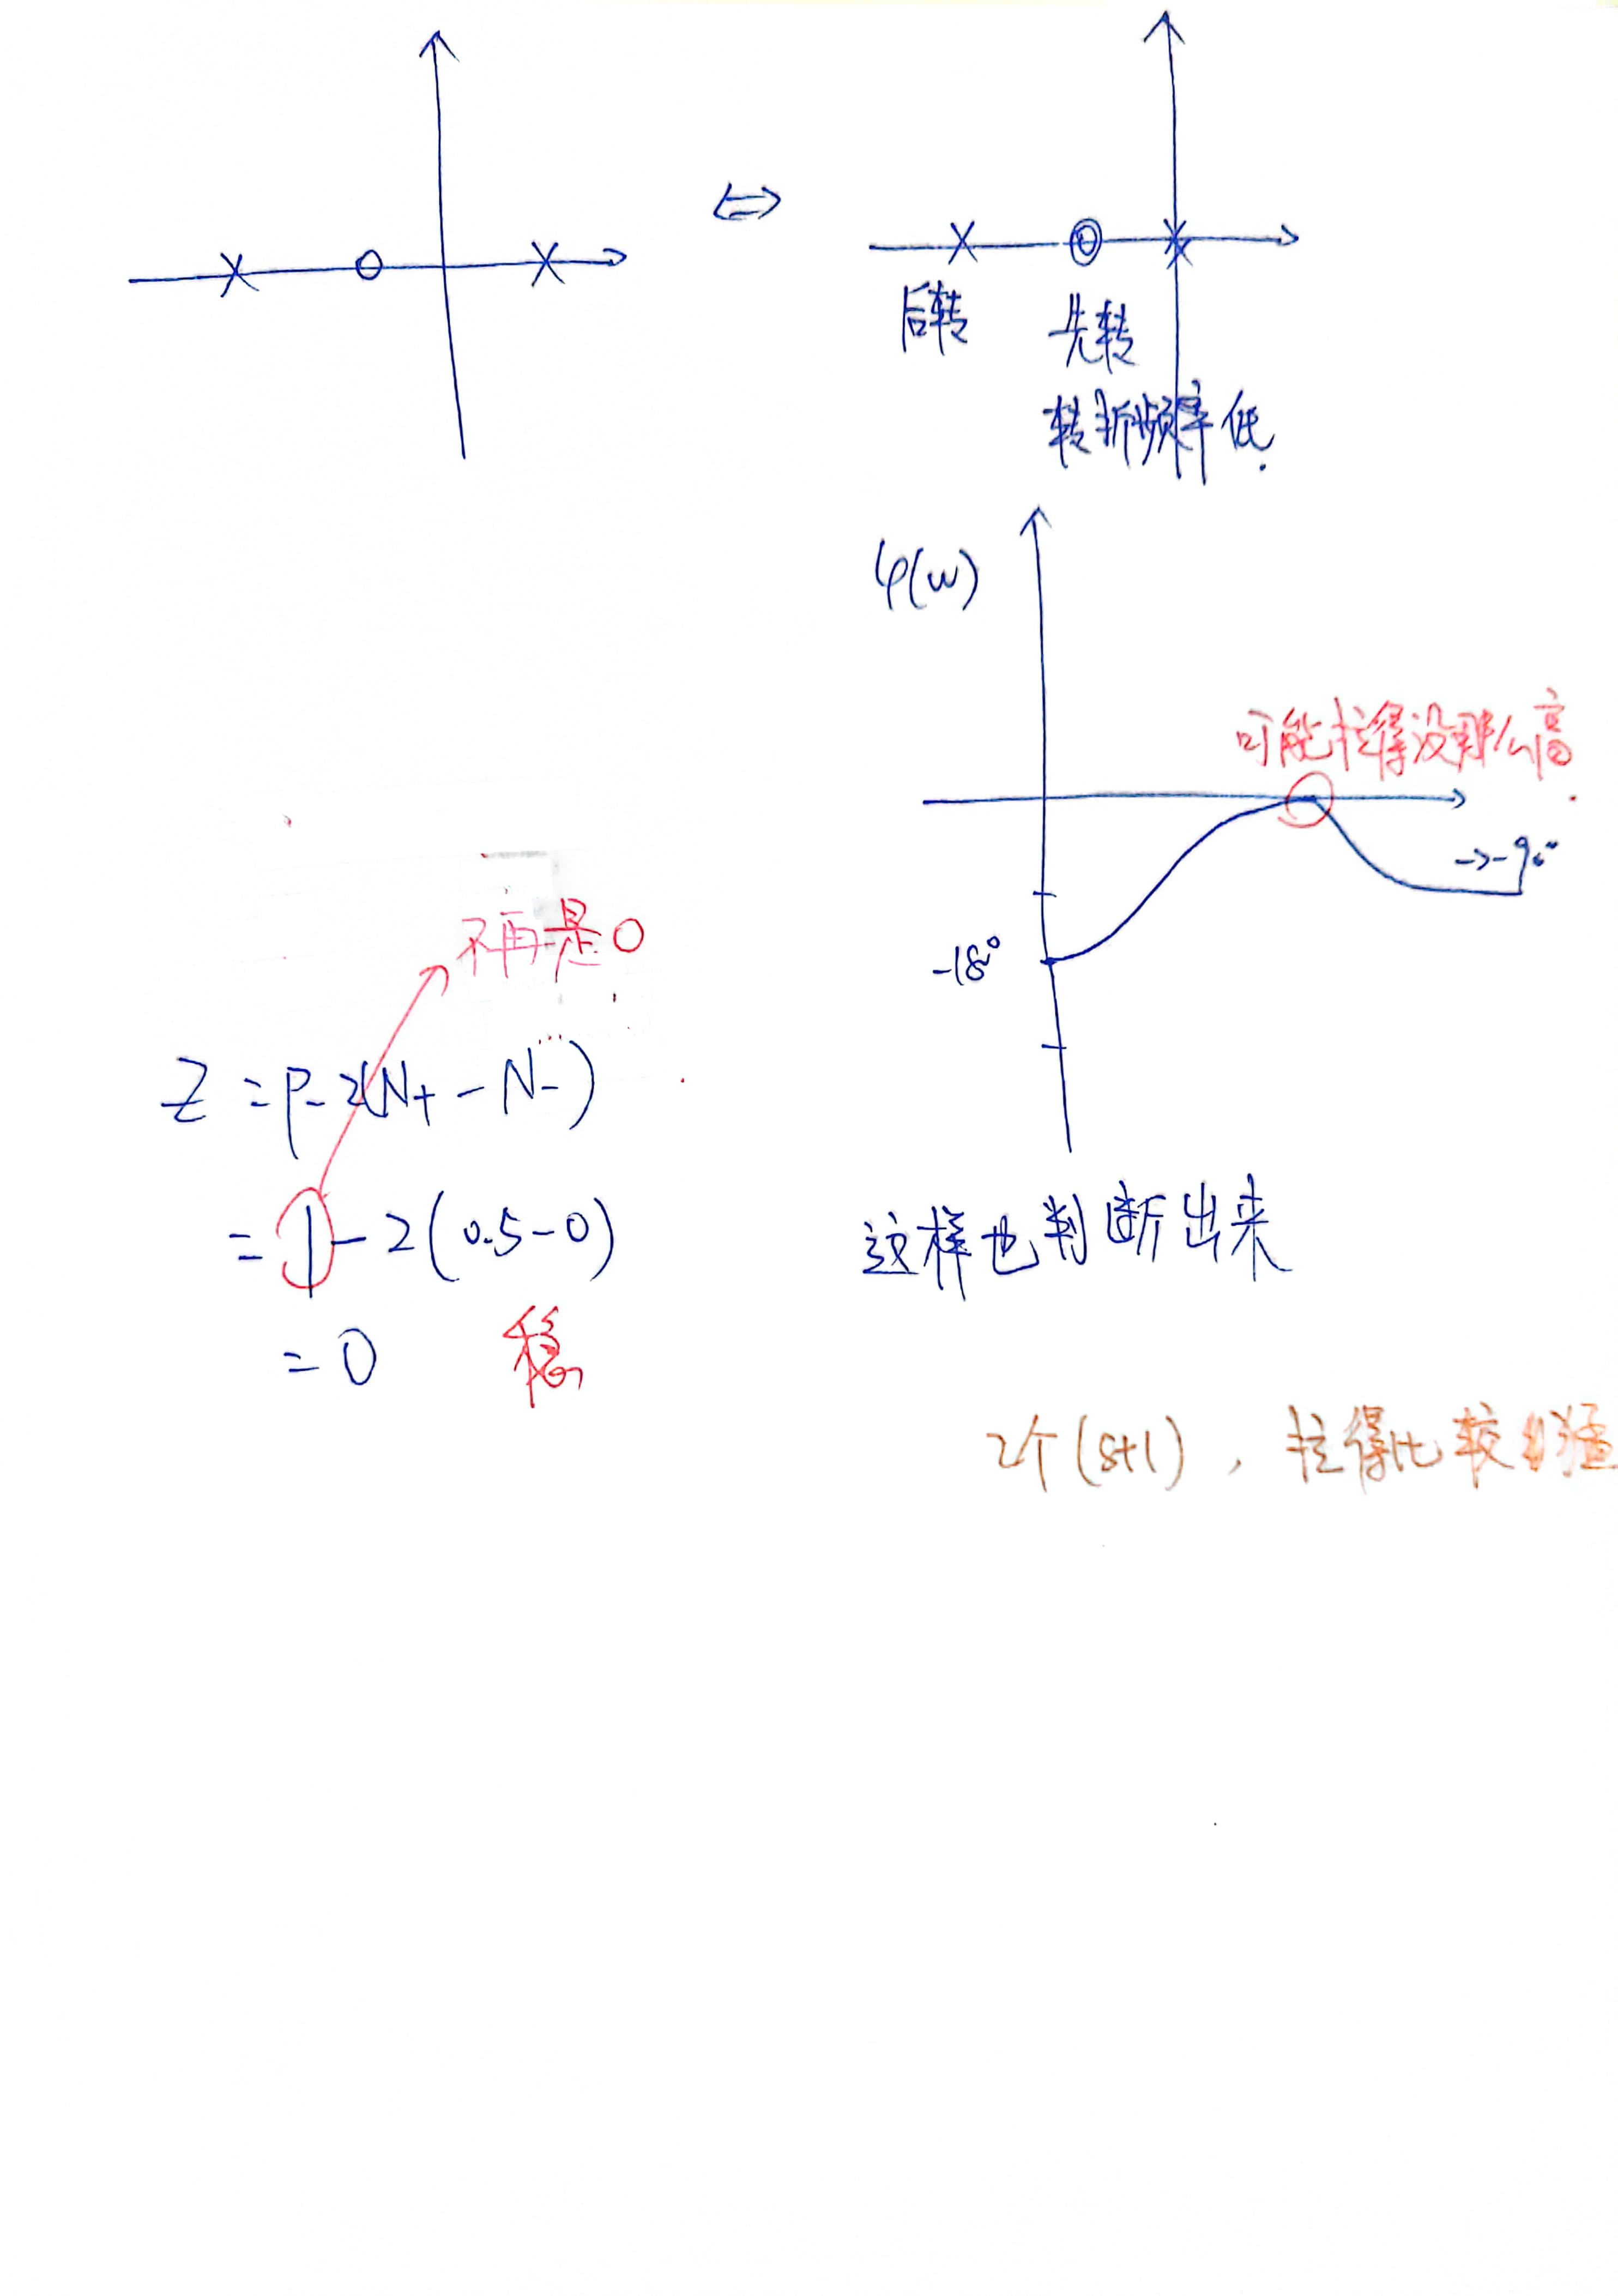 后转 先转
转折频率低.
φ(w)
可能拉得没那么高.
→-90°
-180°
不再是0
Z = P - 2(N+ - N-)
= 1 - 2(0.5-0)
= 0 稳
这样也判断出来
2个(s+1), 拉得比较猛